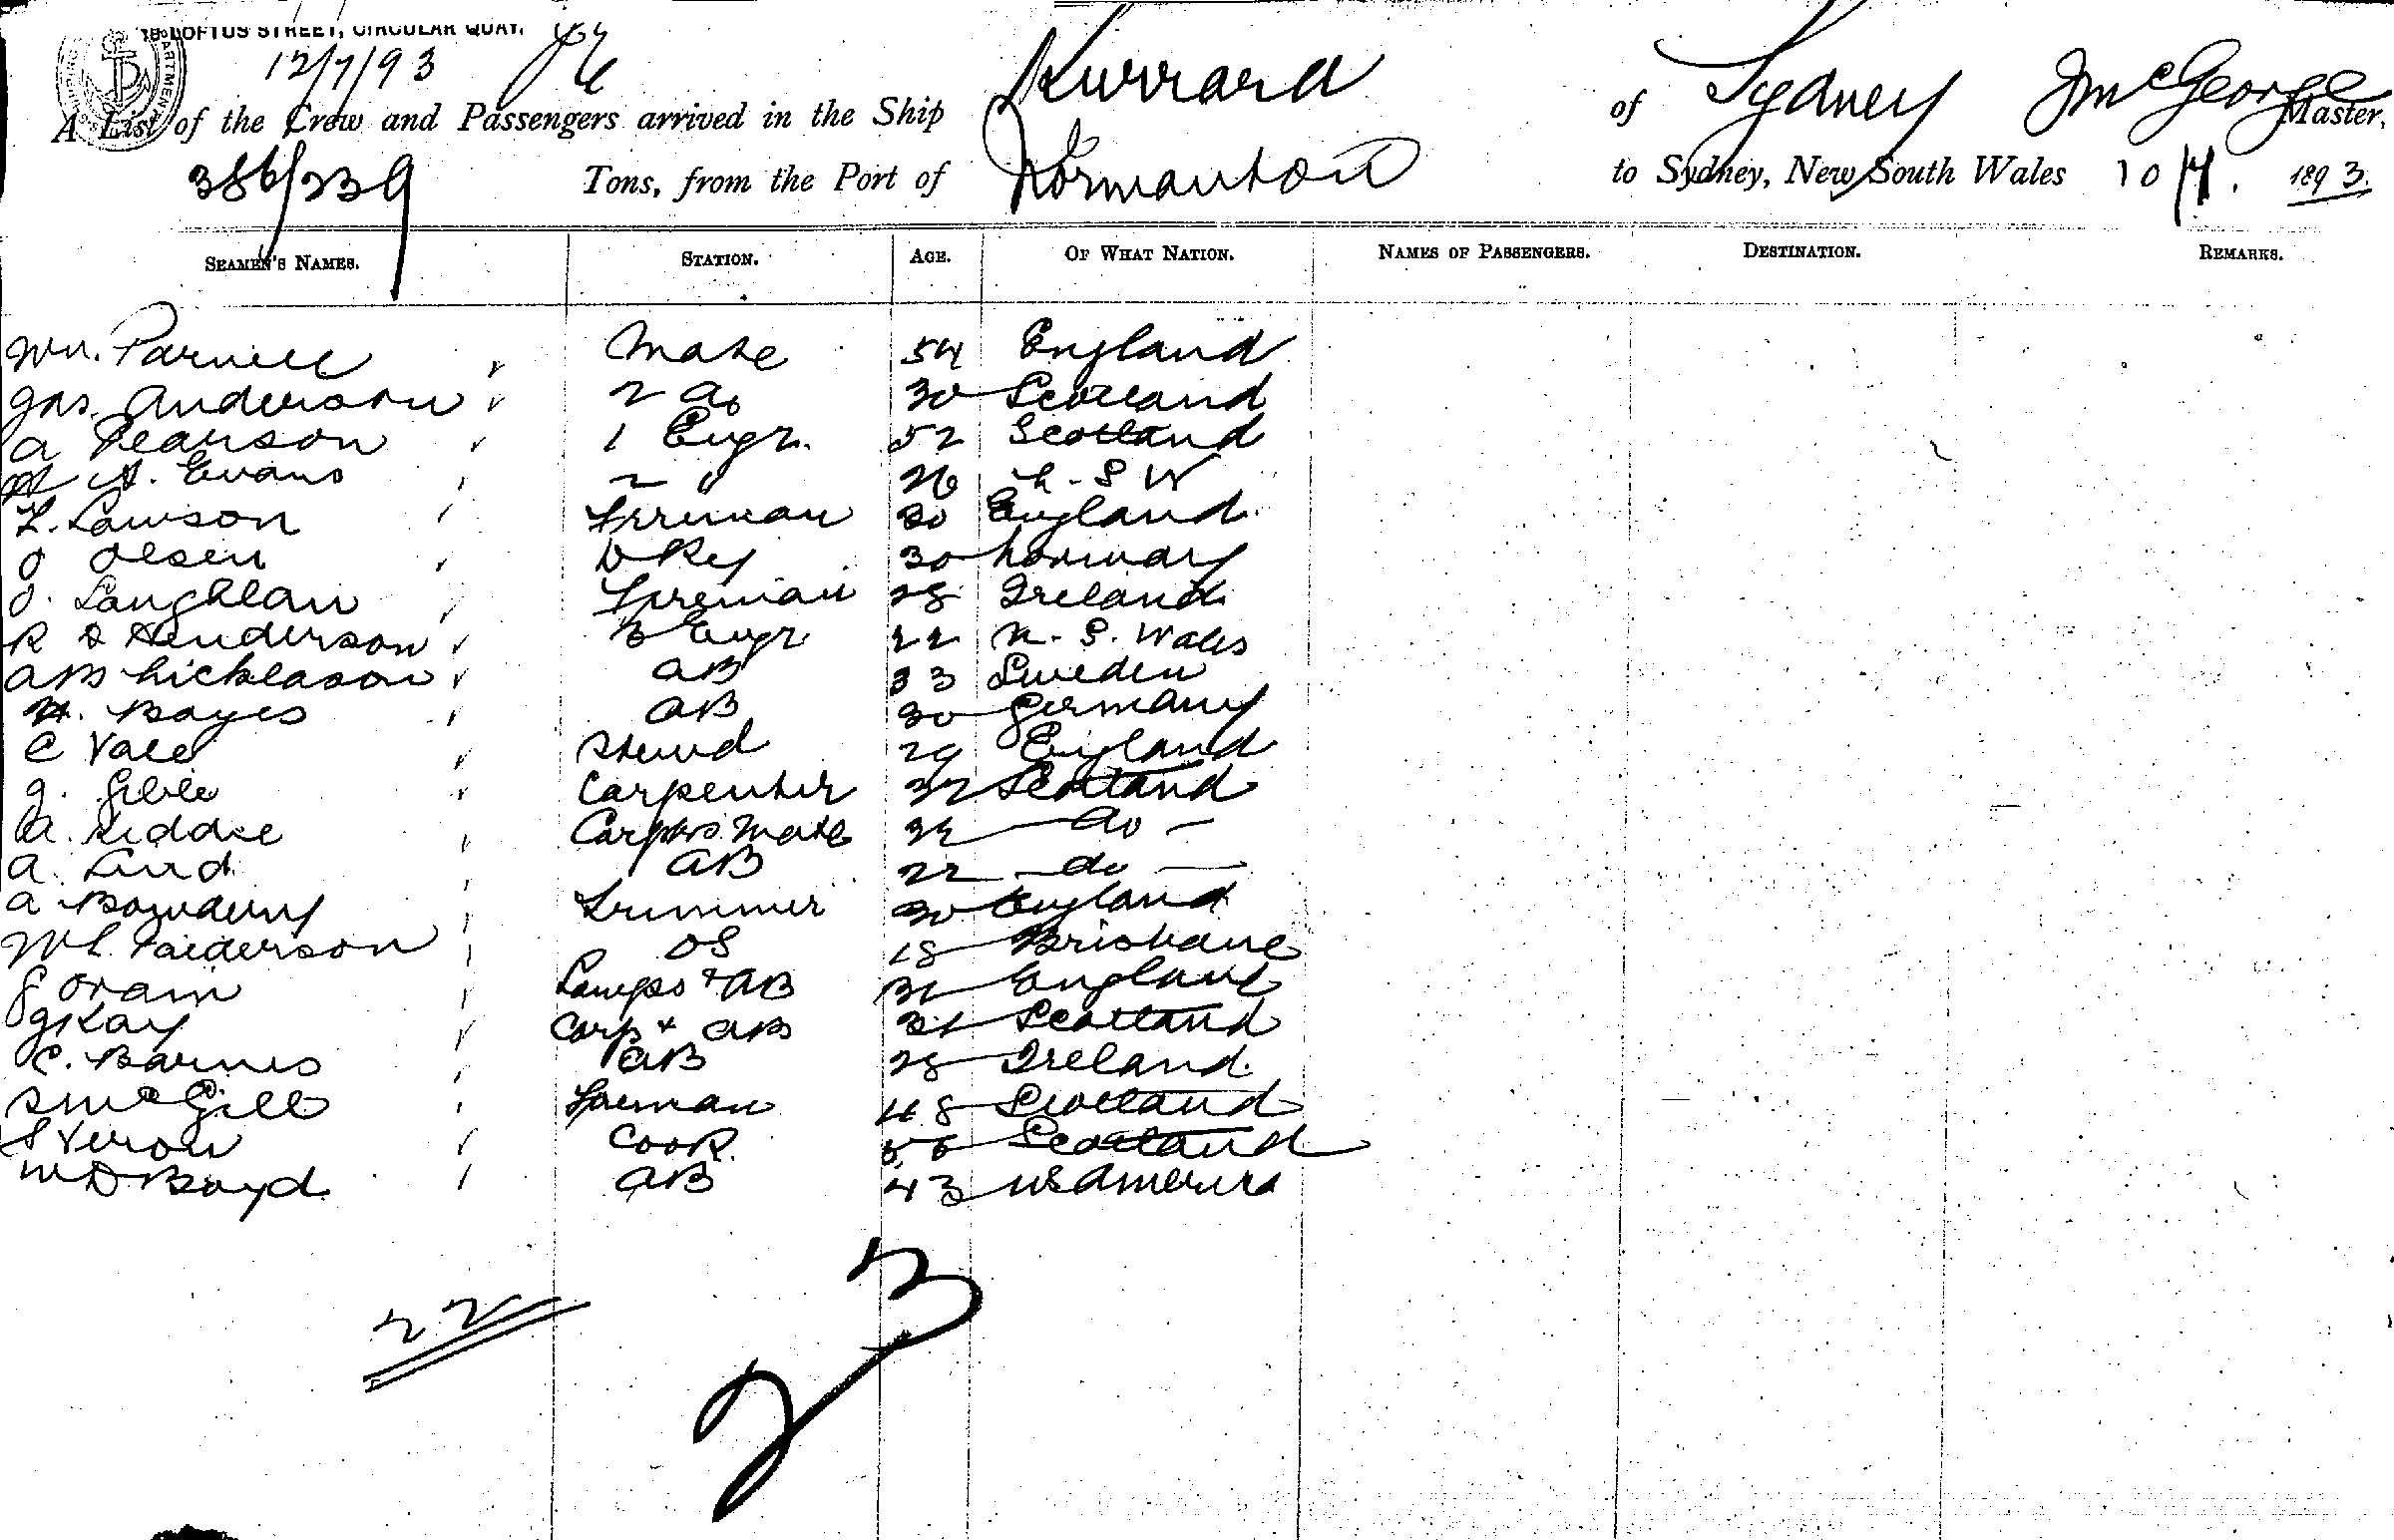 19 LOFTUS STREET, CIRCULAR QUAY.
12/7/93
A List of the Crew and Passengers arrived in the Ship Kurrara of Sydney J McGeorge Master,
386/239 Tons, from the Port of Normanton to Sydney, New South Wales 10/7. 1893.
SEAMEN'S NAMES. STATION. AGE. OF WHAT NATION. NAMES OF PASSENGERS. DESTINATION. REMARKS.
Wm. Parnell Mate 54 England
Jas. Anderson 2 do 30 Scotland
A Pearson 1 Engr. 52 Scotland
A. Evans 2 " 26 N. S W
L. Lawson Fireman 30 England
O Olsen DKey 30 Norway
J. Laughlan Fireman 28 Ireland
R D Henderson 3 Engr 22 N. S. Wales
AB Nicklason AB 33 Sweden
H. Bayes AB 30 Germany
C Vale Stewd 29 England
G. Carpenter 32 Scotland
A. Kiddie Carptrs Mate 32 do
A. Lind AB 22 do
A Trimmer 30 England
OS 18 Brisbane
Oram Lamps + AB England
G Kay Carp + AB 31 Scotland
C. Barnes AB 28 Ireland
S McGill 48 Scotland
Cook. 56 Scotland
W D Boyd AB 43 US America
22
23